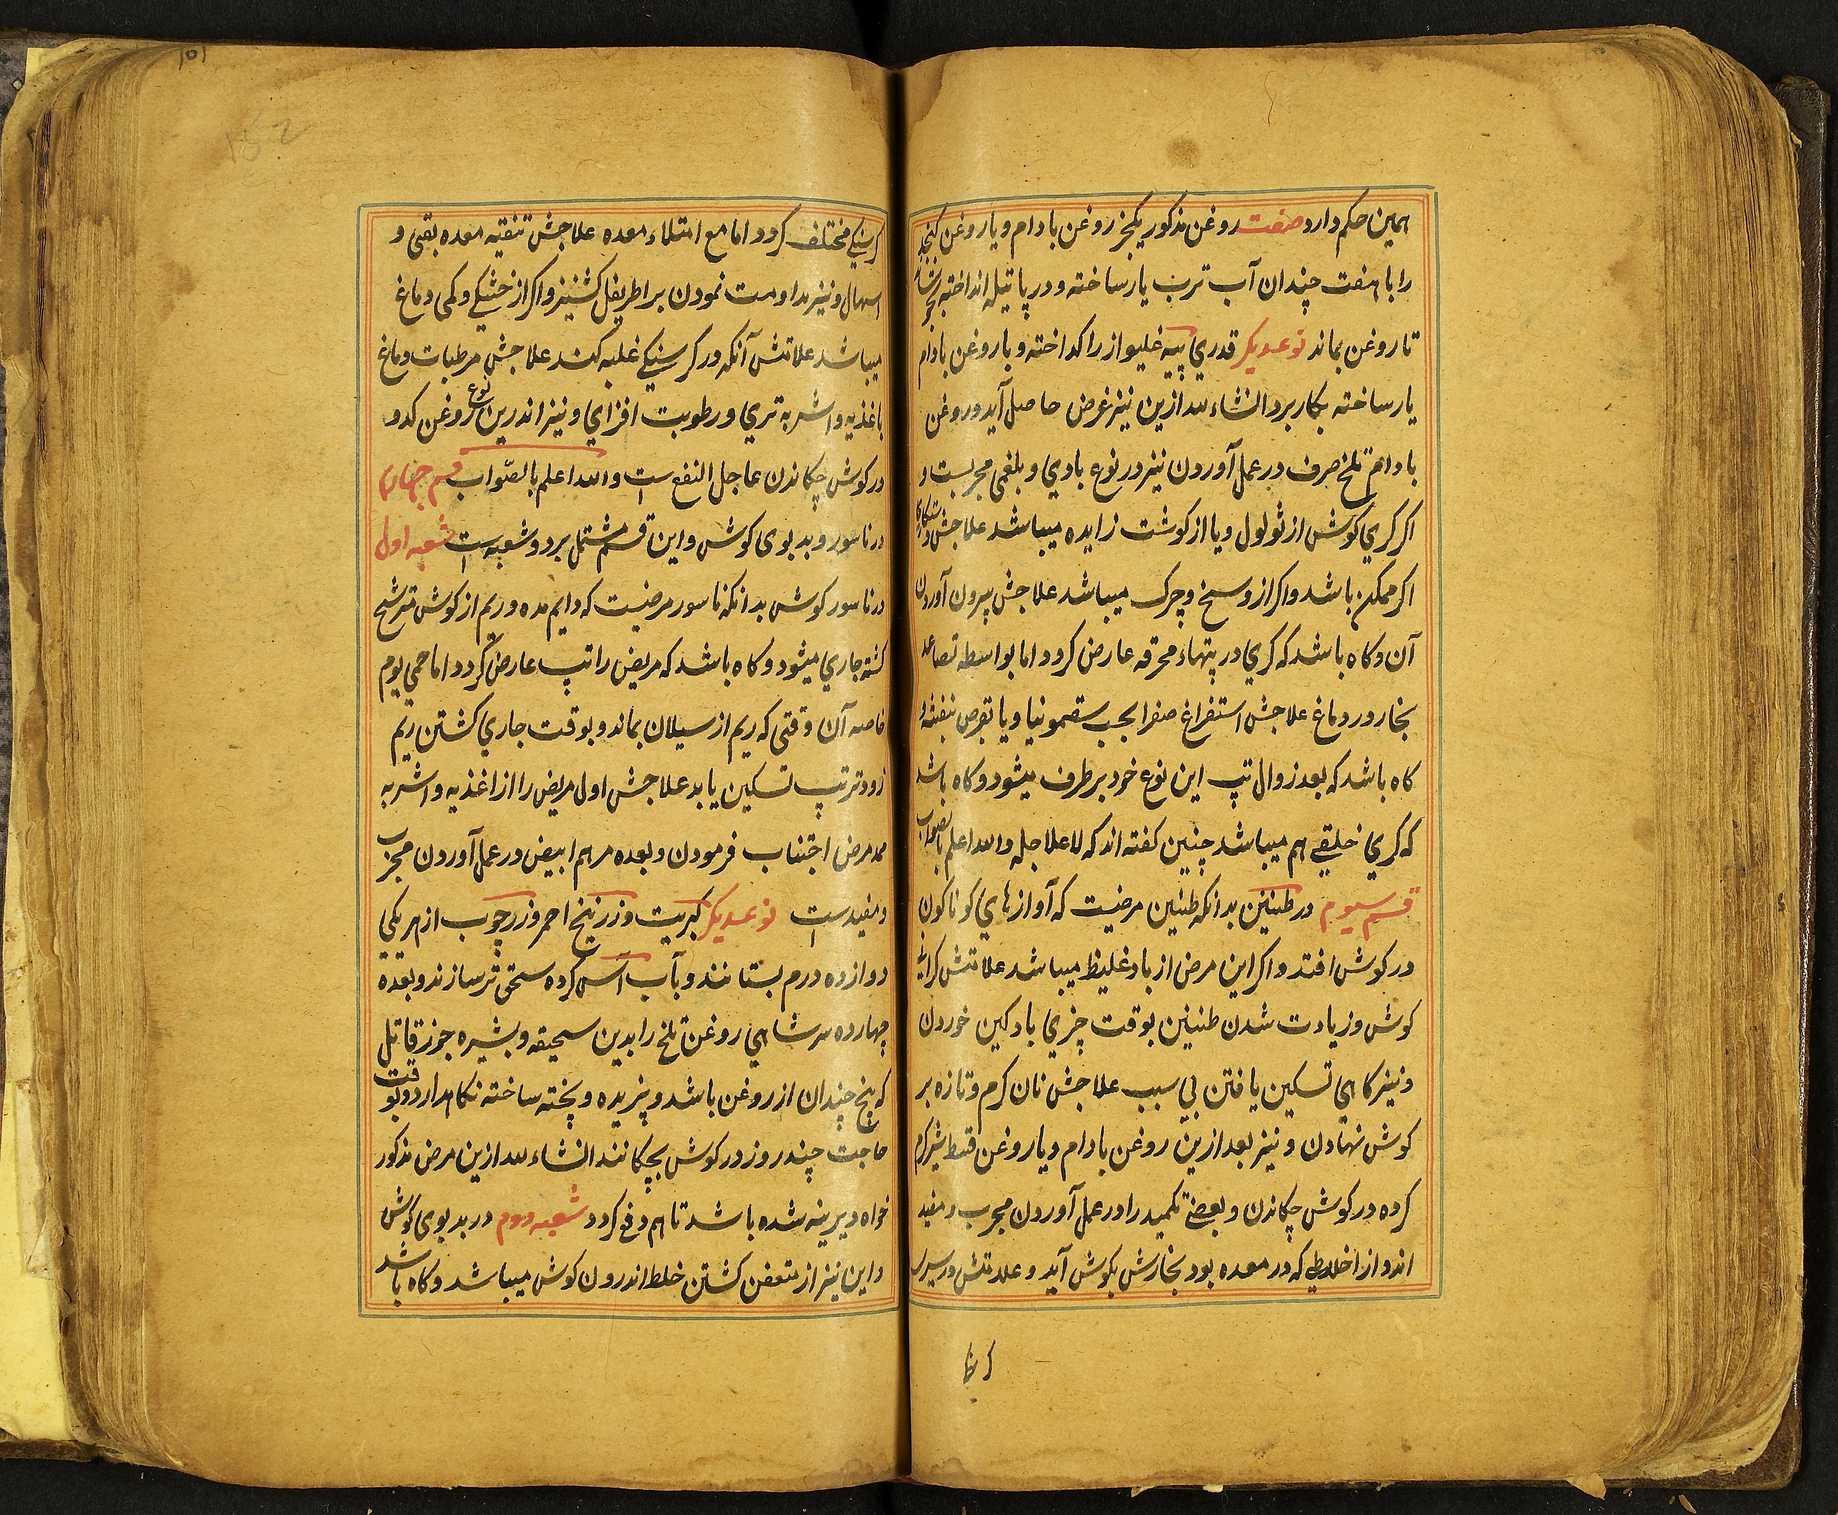 همین حکم دارد صنعت روغن مذکور یکجز روغن بادام و یا روغن کنجد
را با هفت چندان آب ترب یار ساخته و در پاتیله انداخته
تا روغن بماند نوعدیکر قدري پیه غلیواز را کداخته و با روغن بادام
یار ساخته بکار برد انشاء لله ازین نیز غرض حاصل آید و روغن
بادام تلخ صرف در عمل آوردن نیز در نوع بادي و بلغمی مجربست و
اکر کري کوش از ثولول و یا از کوشت زایده میباشد علاجش
اکر ممکن باشد و اکر از وسخ و چرک میباشد علاجش بیرون آوردن
آن و کاه باشد که کري در تپهاء محرقه عارض کردد اما بواسطه تصاعد
بخار در دماغ علاجش استفراغ صفرا بحب سقمونیا و یا بقرص بنفشه و
کاه باشد که بعد زوال تپ این نوع خود برطرف میشود و کاه باشد
که کري خلیقے هم میباشد چنین کفته اند که لا علاج له والله اعلم بالصواب
قسم سیوم در طنین بدانکه طنین مرضیت که آوازهاي کوناکون
در کوش افتد و اکر این مرض از باد غلیظ میباشد علامتش کرانے
کوش و زیادت شدن طنین بوقت چیزي بادکین خوردن
و نیز کاهي تسکین یافتن بي سبب علاجش نان کرم و تازه بر
کوش نهادن و نیز بعد ازین روغن بادام و یا روغن قسط شیر کرم
کرده در کوش چکاندن و بعضے تکمید را در عمل آوردن مجرب و مفید
اند و از اخلاطی که در معده بود بخارش بکوش آید و علامتش در سیري
کرسنکے مختلف کردد اما مع امتلاء معده علاجش تنقیه معده بقئ و
اسهال و نیز مداومت نمودن بر اطریفل کشنیز و اکر از خشکے و کمی دماغ
میباشد علامتش آنکه در کرسنکے غلبه کند علاجش مرطبات دماغ
باغذیه و اشربه تري و رطوبت افزاي و نیز اندرین نوع روغن کدو
در کوش چکاندن عاجل النفع است والله اعلم بالصّواب قسم چهارم
در ناسور و بدبوی کوش و این قسم مشتمل بر دو شعبه است شعبه اول
در ناسور کوش بدانکه ناسور مرضیت که دایم مده و ریم از کوش مترشح
کشته جاري میشود و کاه باشد که مریض را تپ عارض کردد اما حمي یوم
خاصه آن وقتی که ریم از سیلان بماند و بوقت جاري کشتن ریم
زودتر تپ تسکین یابد علاجش اول مریض را از اغذیه و اشربه
ممد مرض اجتناب فرمودن و بعده مرهم ابیض در عمل آوردن مجرب
و مفید است نوعدیکر کبریت و زرنیخ احمر و زرچوب از هر یکي
دوازده درم بستانند و بآب آس کرده سحق تر سازند و بعده
چهارده سر شاهي روغن تلخ را بدین سحیقه و بشیره جوز قاتل
که پنج چندان از روغن باشد و پزیده و پخته ساخته نکاهدارد و بوقت
حاجت چند روز در کوش بچکانند انشاء لله ازین مرض مذکور
خواه دیرینه شده باشد تا هم دفع کردد شعبه دوم در بدبوی کوش
و این نیز از متعفن کشتن خلط اندرون کوش میباشد و کاه باشد